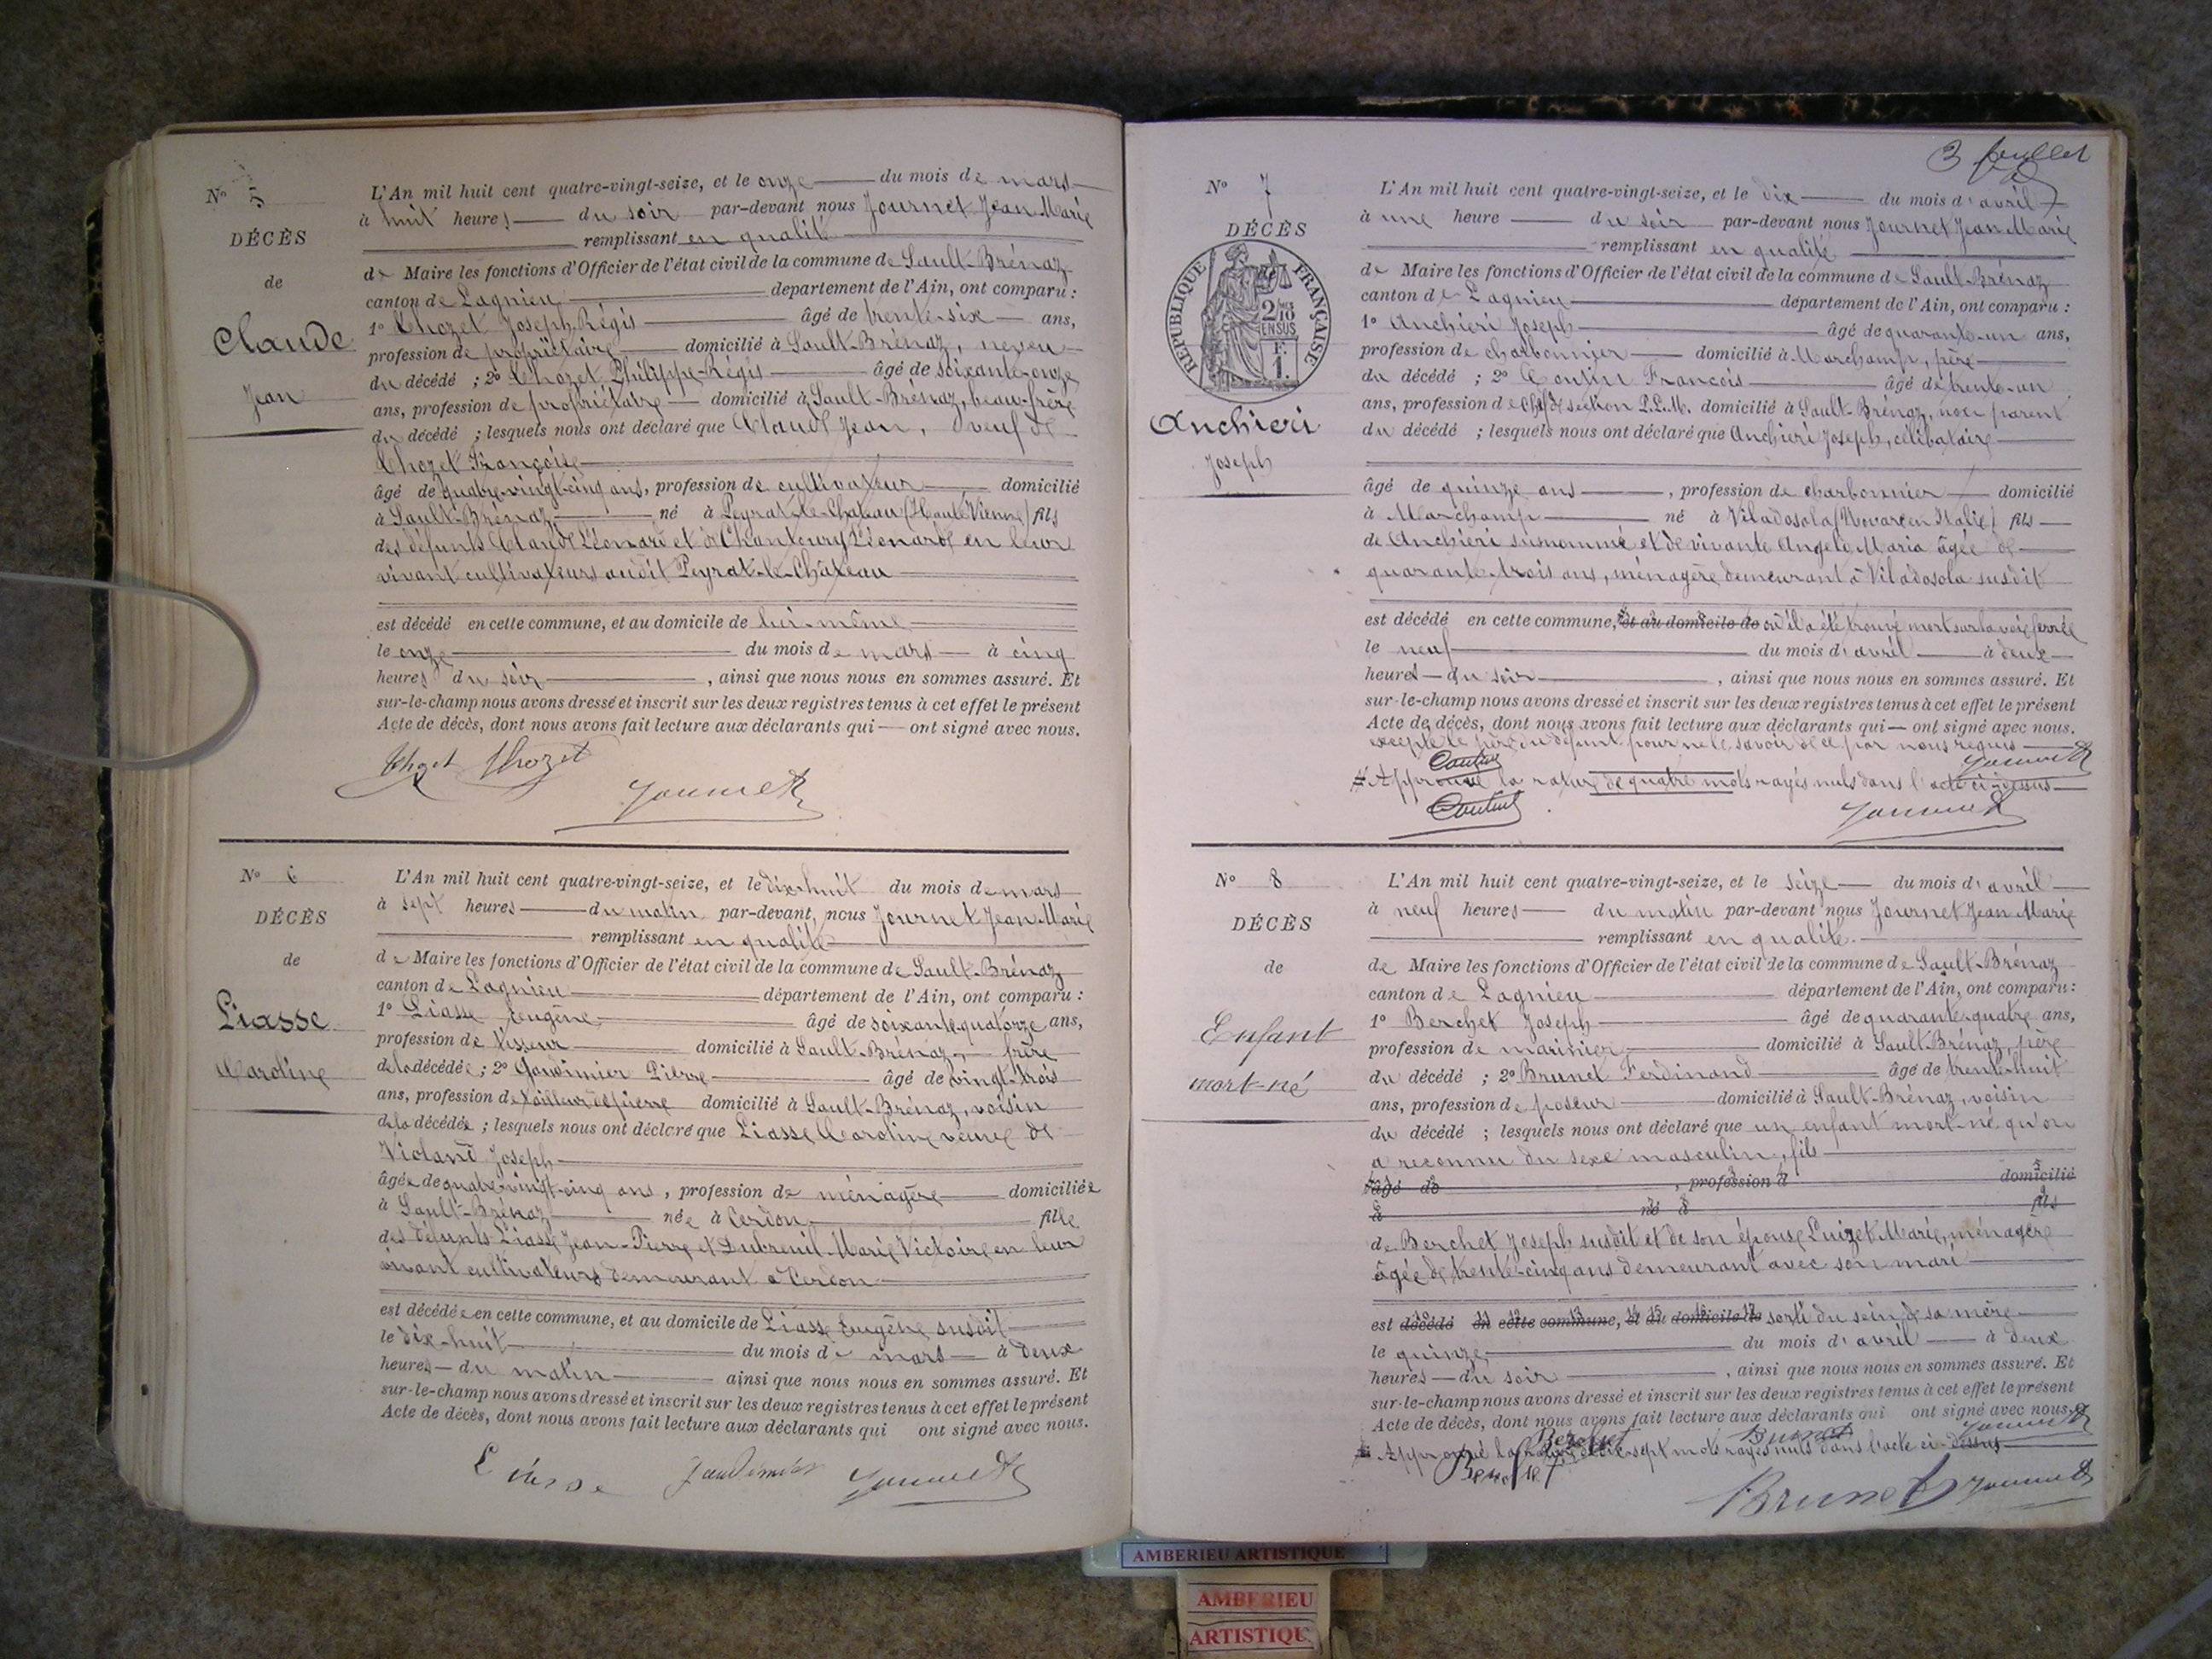 N° 5
DÉCÈS
de
Claude
Jean
L'An mil huit cent quatre-vingt-seize, et le onze du mois de mars
à huit heures du soir par-devant nous Journet Jean Marie
remplissant en qualité
de Maire les fonctions d'Officier de l'état civil de la commune de Sault-Brénaz
canton de Lagnieu département de l'Ain, ont comparu :
1° Chozet Joseph Régis âgé de trente-six ans,
profession de propriétaire domicilié à Sault-Brénaz, neveu
du décédé ; 2° Chozet Philippe-Régis âgé de soixante-onze
ans, profession de propriétaire domicilié à Sault-Brénaz, beau-frère
du décédé ; lesquels nous ont déclaré que Claude Jean, veuf de
Chozet Françoise
âgé de quatre-vingt-cinq ans, profession de cultivateur domicilié
à Sault-Brénaz né à Peyrat-le-Château (Haute Vienne) fils
des défunts Claude Léonard et de Chanteury Léonarde en leur
vivant cultivateurs audit Peyrat-le-Château
est décédé en cette commune, et au domicile de lui-même
le onze du mois de mars à cinq
heures du soir, ainsi que nous nous en sommes assuré. Et
sur-le-champ nous avons dressé et inscrit sur les deux registres tenus à cet effet le présent
Acte de décès, dont nous avons fait lecture aux déclarants qui ont signé avec nous.
Chozet Journet
N° 6
DÉCÈS
de
Liasse
Caroline
L'An mil huit cent quatre-vingt-seize, et le dix-huit du mois de mars
à sept heures du matin par-devant nous Journet Jean Marie
remplissant en qualité
de Maire les fonctions d'Officier de l'état civil de la commune de Sault-Brénaz
canton de Lagnieu département de l'Ain, ont comparu :
1° Liasse Eugène âgé de soixante-quatorze ans,
profession de tisseur domicilié à Sault-Brénaz, frère
de la décédée ; 2° Gaudimier Pierre âgé de vingt-trois
ans, profession de tailleur de pierre domicilié à Sault-Brénaz, voisin
de la décédée ; lesquels nous ont déclaré que Liasse Caroline veuve de
Violand Joseph
âgée de quatre-vingt-cinq ans, profession de ménagère domiciliée
à Sault-Brénaz née à Cerdon fille
des défunts Liasse Jean-Pierre et Dubreuil Marie Victoire en leur
vivant cultivateurs demeurant à Cerdon
est décédée en cette commune, et au domicile de Liasse Eugène susdit
le dix-huit du mois de mars à deux
heures du matin ainsi que nous nous en sommes assuré. Et
sur-le-champ nous avons dressé et inscrit sur les deux registres tenus à cet effet le présent
Acte de décès, dont nous avons fait lecture aux déclarants qui ont signé avec nous.
Liasse Gaudimier Journet
3 feuillet
N° 7
DÉCÈS
RÉPUBLIQUE FRANÇAISE
2/10
EN SUS
F.
1.
Anchieri
Joseph
L'An mil huit cent quatre-vingt-seize, et le dix du mois d'avril
à une heure du soir par-devant nous Journet Jean Marie
remplissant en qualité
de Maire les fonctions d'Officier de l'état civil de la commune de Sault-Brénaz
canton de Lagnieu département de l'Ain, ont comparu :
1° Anchieri Joseph âgé de quarante-un ans,
profession de charbonnier domicilié à Marchamp, père
du décédé ; 2° Coutin François âgé de trente-un
ans, profession de chef de section P.L.M. domicilié à Sault-Brénaz, non parent
du décédé ; lesquels nous ont déclaré que Anchieri Joseph, célibataire
âgé de quinze ans, profession de charbonnier domicilié
à Marchamp né à Viladosola (Novare en Italie) fils
de Anchieri susnommé et de vivante Angele Maria âgée de
quarante-trois ans, ménagère demeurant à Viladosola susdit
est décédé en cette commune, et au domicile de où il a été trouvé mort sur la voie ferrée
le neuf du mois d'avril à deux
heures du soir, ainsi que nous nous en sommes assuré. Et
sur-le-champ nous avons dressé et inscrit sur les deux registres tenus à cet effet le présent
Acte de décès, dont nous avons fait lecture aux déclarants qui ont signé avec nous.
excepté le père du défunt pour ne le savoir de ce par nous requis
Coutin Journet
Approuvé la rature de quatre mots rayés nuls dans l'acte ci-dessus
Coutin Journet
N° 8
DÉCÈS
de
Enfant
mort-né
L'An mil huit cent quatre-vingt-seize, et le seize du mois d'avril
à neuf heures du matin par-devant nous Journet Jean Marie
remplissant en qualité.
de Maire les fonctions d'Officier de l'état civil de la commune de Sault-Brénaz
canton de Lagnieu département de l'Ain, ont comparu :
1° Berchet Joseph âgé de quarante-quatre ans,
profession de marinier domicilié à Sault-Brénaz, père
du décédé ; 2° Brunet Ferdinand âgé de trente-huit
ans, profession de poseur domicilié à Sault-Brénaz, voisin
du décédé ; lesquels nous ont déclaré que un enfant mort-né qu'on
a reconnu du sexe masculin, fils
âgé de, profession d domicilié
à né à fils
de Berchet Joseph susdit et de son épouse Luizet Marie, ménagère
âgée de trente-cinq ans demeurant avec son mari
est décédé en cette commune, et au domicile de sorti du sein de sa mère
le quinze du mois d'avril à deux
heures du soir, ainsi que nous nous en sommes assuré. Et
sur-le-champ nous avons dressé et inscrit sur les deux registres tenus à cet effet le présent
Acte de décès, dont nous avons fait lecture aux déclarants qui ont signé avec nous.
Berchet Brunet Journet
Approuvé la rature de dix-sept mots rayés nuls dans l'acte ci-dessus
Berchet Brunet Journet
AMBERIEU ARTISTIQUE
AMBERIEU
ARTISTIQU